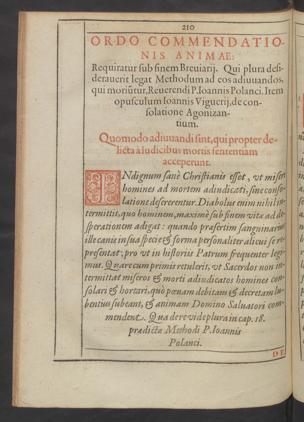 210
ORDO COMMENDATIO-
NIS ANIMAE:
Requiratur sub finem Breuiarij. Qui plura desi-
derauerit legat Methodum ad eos adiuuandos,
qui moriūtur, Reuerendi P. Ioannis Polanci. Item
opusculum Ioannis Viguerij, de con-
solatione Agonizan-
tium.
Quomodo adiuuandi sint, qui propter de-
licta a Iudicibus mortis sententiam
acceperunt.
INdignum sanè Christianis esset, vt miseri
homines ad mortem adiudicati, sine conso-
latione desererentur. Diabolus enim nihil in-
termittit, quo hominem, maximè sub finem vitæ ad de-
sperationem adigat: quando præsertim sanguinarius
ille canis in sua specie & forma personaliter alicui se re-
præsentat, pro vt in historiis Patrum frequenter legi-
mus. Quare cum primis retulerit, vt Sacerdos non in-
termittat misero & morti adiudicatos homines con-
solari & hortari, quò pœnam debitam & decretam lu-
bentius subeant, & animam Domino Saluatori com-
mendent. Qua de re vide plura in cap. 18.
prædictæ Methodi P. Ioannis
Polanci.
DE